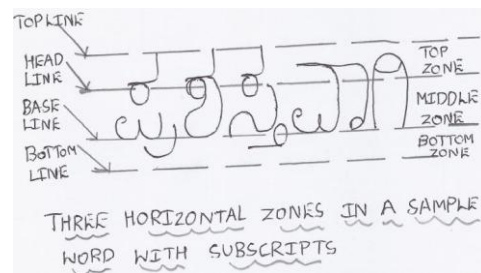 TOP LINE
HEAD LINE
BASE LINE
BOTTOM LINE
TOP ZONE
MIDDLE ZONE
BOTTOM ZONE
THREE HORIZONTAL ZONES IN A SAMPLE
WORD WITH SUBSCRIPTS